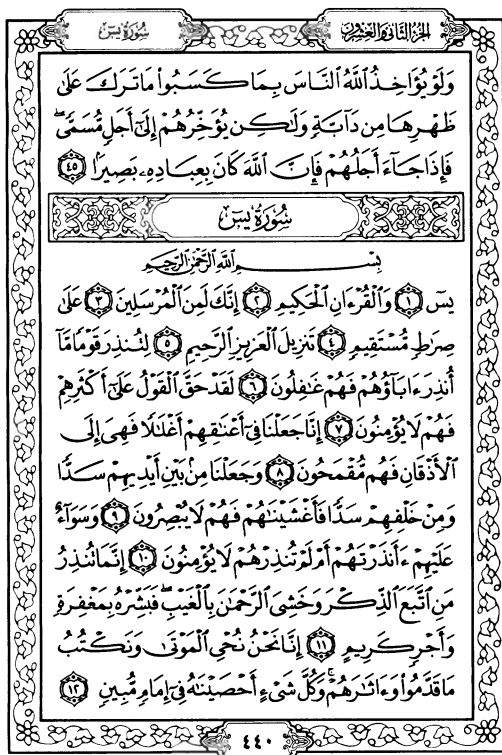 سُورَةُ يسٓ
الجُزْءُ الثَّانِي وَالعِشْرُونَ
وَلَوْ يُؤَاخِذُ ٱللَّهُ ٱلنَّاسَ بِمَا كَسَبُوا۟ مَا تَرَكَ عَلَىٰ
ظَهْرِهَا مِن دَآبَّةٍ وَلَـٰكِن يُؤَخِّرُهُمْ إِلَىٰٓ أَجَلٍ مُّسَمًّى ۖ
فَإِذَا جَآءَ أَجَلُهُمْ فَإِنَّ ٱللَّهَ كَانَ بِعِبَادِهِۦ بَصِيرًۢا ٤٥
سُورَةُ يسٓ
بِسْمِ ٱللَّهِ ٱلرَّحْمَـٰنِ ٱلرَّحِيمِ
يسٓ ١ وَٱلْقُرْءَانِ ٱلْحَكِيمِ ٢ إِنَّكَ لَمِنَ ٱلْمُرْسَلِينَ ٣ عَلَىٰ
صِرَٰطٍ مُّسْتَقِيمٍ ٤ تَنزِيلَ ٱلْعَزِيزِ ٱلرَّحِيمِ ٥ لِتُنذِرَ قَوْمًا مَّآ
أُنذِرَ ءَابَآؤُهُمْ فَهُمْ غَـٰفِلُونَ ٦ لَقَدْ حَقَّ ٱلْقَوْلُ عَلَىٰٓ أَكْثَرِهِمْ
فَهُمْ لَا يُؤْمِنُونَ ٧ إِنَّا جَعَلْنَا فِىٓ أَعْنَـٰقِهِمْ أَغْلَـٰلًا فَهِىَ إِلَى
ٱلْأَذْقَانِ فَهُم مُّقْمَحُونَ ٨ وَجَعَلْنَا مِنۢ بَيْنِ أَيْدِيهِمْ سَدًّا
وَمِنْ خَلْفِهِمْ سَدًّا فَأَغْشَيْنَـٰهُمْ فَهُمْ لَا يُبْصِرُونَ ٩ وَسَوَآءٌ
عَلَيْهِمْ ءَأَنذَرْتَهُمْ أَمْ لَمْ تُنذِرْهُمْ لَا يُؤْمِنُونَ ١٠ إِنَّمَا تُنذِرُ
مَنِ ٱتَّبَعَ ٱلذِّكْرَ وَخَشِىَ ٱلرَّحْمَـٰنَ بِٱلْغَيْبِ ۖ فَبَشِّرْهُ بِمَغْفِرَةٍ
وَأَجْرٍ كَرِيمٍ ١١ إِنَّا نَحْنُ نُحْىِ ٱلْمَوْتَىٰ وَنَكْتُبُ
مَا قَدَّمُوا۟ وَءَاثَـٰرَهُمْ ۚ وَكُلَّ شَىْءٍ أَحْصَيْنَـٰهُ فِىٓ إِمَامٍ مُّبِينٍ ١٢
٤٤٠